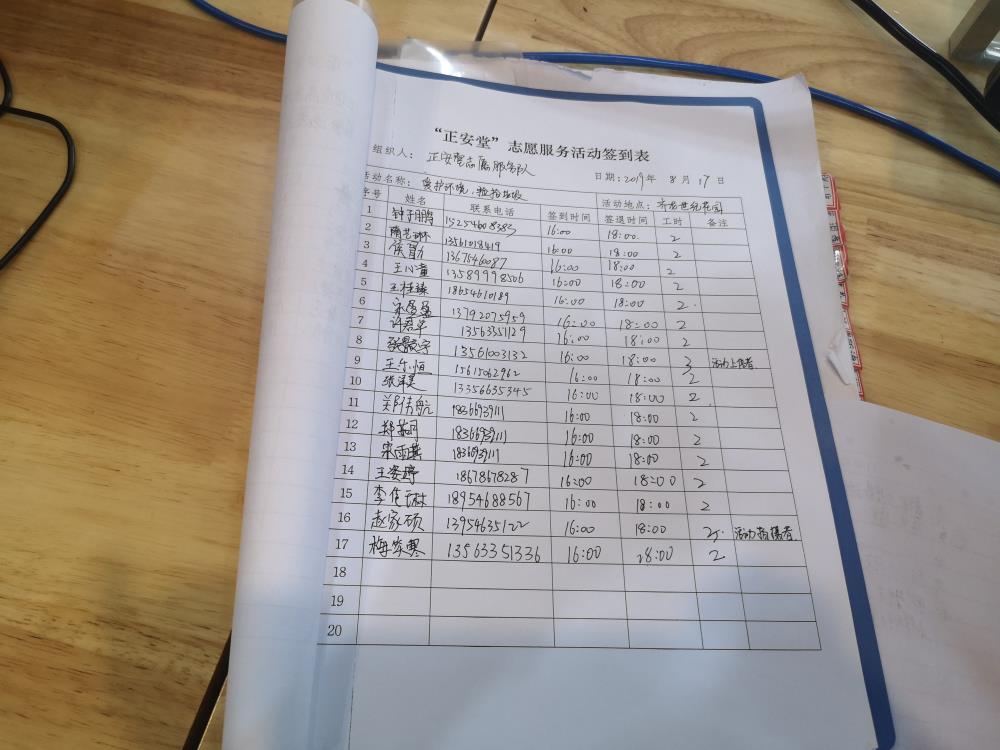 “正安堂”志愿服务活动签到表
组织人： 正安堂志愿服务队 日期：2019年 8 月 17 日
活动名称： 爱护环境，捡拾垃圾 活动地点：世纪花园
序号 姓名 联系电话 签到时间 签退时间 工时 备注
1 钟子鹏 15254608383 16:00 18:00 2
2 隋艺琳 13561018419 16:00 18:00 2
3 13675460087 16:00 18:00 2
4 王心童 13589998506 16:00 18:00 2
5 王桂臻 18654610189 16:00 18:00 2
6 13792075959 16:00 18:00 2
7 许君卓 13563351129 16:00 18:00 2
8 张宇 13561003132 16:00 18:00 活动
9 王尔恒 15615062962 16:00 18:00 2
10 张洋昊 13356635345 16:00 18:00 2
11 郑伟航 18366939111 16:00 18:00 2
12 郑 18366939111 16:00 18:00 2
13 宋雨燕 18366939111 16:00 18:00 2
14 王姿婷 18678678287 16:00 18:00 2
15 李佳琳 18954688567 16:00 18:00 2
16 赵家硕 13954635122 16:00 18:00 活动拍摄者
17 梅岑寒 13563351336 16:00 18:00 2
18
19
20